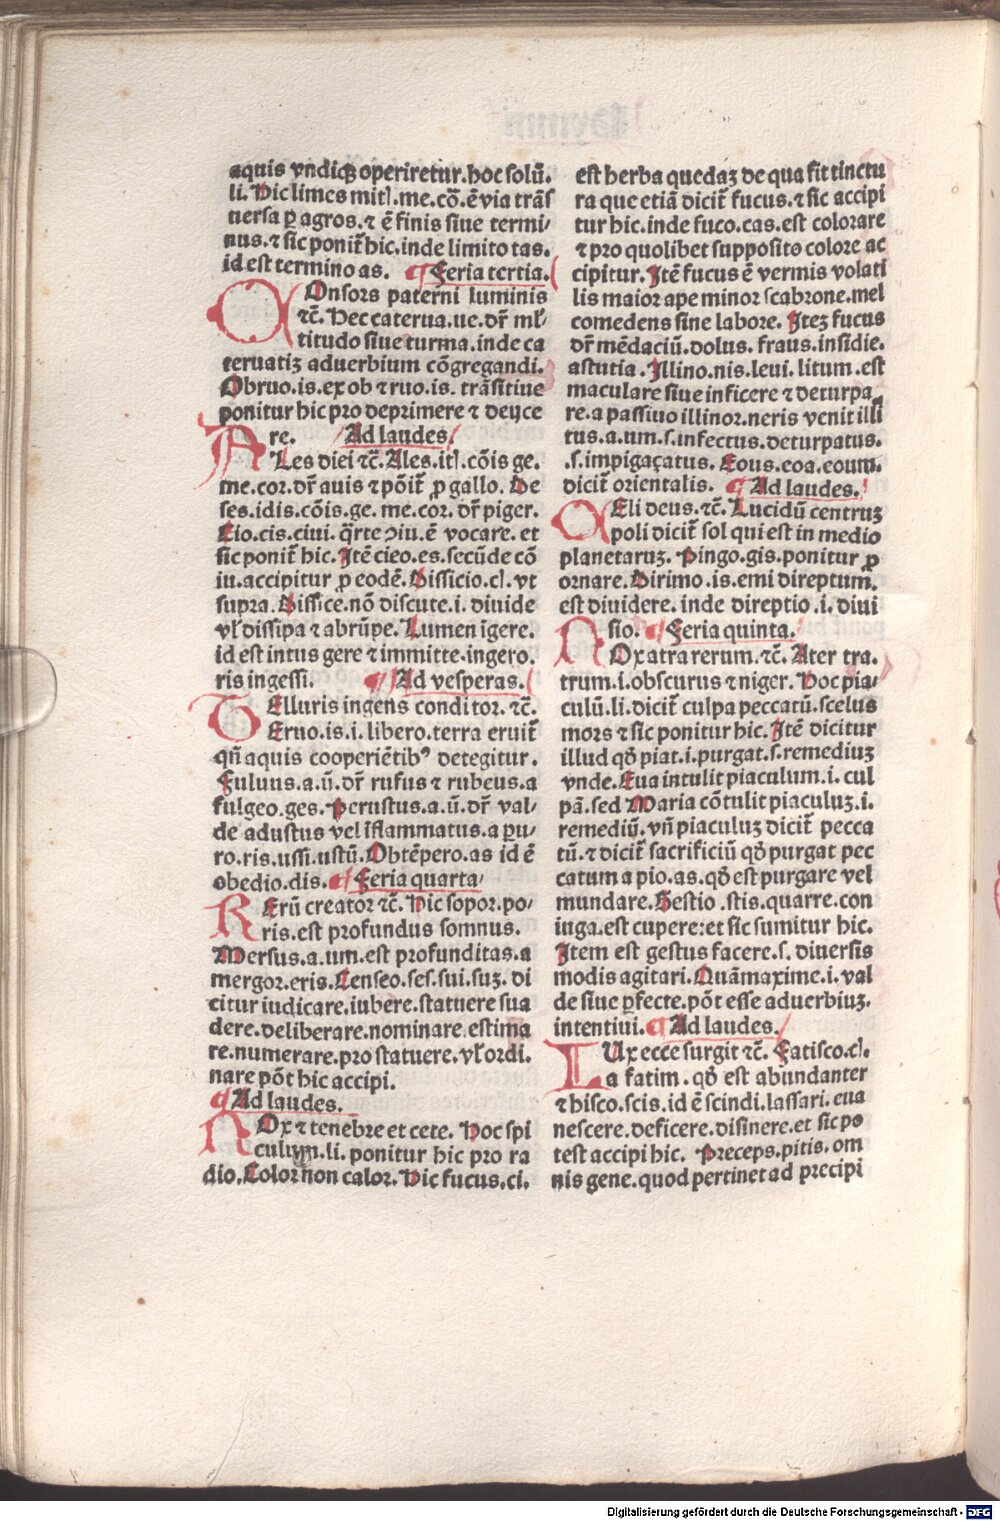 aquis vndiqꝫ operiretur. hoc solū.
li. Hic limes mitꝭ. me. cō. ē via trās
uersa ꝑ agros. ⁊ ē finis siue termi-
nus. ⁊ sic ponit̄ hic. inde limito tas.
id est termino as. ¶ Feria tertia.
COnsors paterni luminis
⁊c̄. Hec caterua. ue. dr̄ ml'-
titudo siue turma. inde ca
teruatiꝫ aduerbium cōgregandi.
Obruo. is. ex ob ⁊ ruo. is. trāsitiue
ponitur hic pro deprimere ⁊ deijce
re. Ad laudes.
ALes diei ⁊c̄. Ales. itꝭ. cōis ge.
me. cor. dr̄ auis ⁊ pōit̄ ꝓ gallo. De
ses. idis. cōis. ge. me. cor. dr̄ piger.
Cio. cis. ciui. q̄rte ↄiu. ē vocare. et
sic ponit̄ hic. Itē cieo. es. secūde cō
iu. accipitur ꝓ eodē. Dissicio. cꝭ. vt
supra. Dissice. nō discute. i. diuide
vl' dissipa ⁊ abrūpe. Lumen īgere.
id est intus gere ⁊ immitte. ingero.
ris ingessi. ¶ Ad vesperas.
TElluris ingens conditor. ⁊c̄.
Eruo. is. i. libero. terra eruit̄
qn̄ aquis cooperiētibꝰ detegitur.
Fuluus. a. ū. dr̄ rufus ⁊ rubeus. a
fulgeo. ges. Perustus. a. ū. dr̄ val-
de adustus vel īflammatus. a ꝑu-
ro. ris. ussi. ustū. Obtēpero. as id ē
obedio. dis. ¶ Feria quarta
RErū creator ⁊c̄. Hic sopor. po-
ris. est profundus somnus.
Mersus. a. um. est profunditas. a
mergor. eris. Censeo. ses. sui. suꝫ. di
citur iudicare. iubere. statuere sua
dere. deliberare. nominare. estima
re. numerare. pro statuere. vl' ordi.
nare pōt hic accipi.
¶ Ad laudes.
NOx ⁊ tenebre et cete. Hoc spi
culum. li. ponitur hic pro ra
dio. Color non calor. Hic fucus. ci.
est herba quedaꝫ de qua fit tinctu
ra que etiā dicit̄ fucus. ⁊ sic accipi
tur hic. inde fuco. cas. est colorare
⁊ pro quolibet supposito colore ac
cipitur. Itē fucus ē vermis volati
lis maior ape minor scabrone. mel
comedens sine labore. Iteꝫ fucus
dr̄ mēdaciū. dolus. fraus. insidie.
astutia. Illino. nis. leui. litum. est
maculare siue inficere ⁊ deturpa
re. a passiuo illinor. neris venit illi
tus. a. um. s. infectus. deturpatus.
.s. impigaçatus. Eous. eoa. eoum.
dicit̄ orientalis. ¶ Ad laudes.
CEli deus. ⁊c̄. Lucidū centruꝫ
poli dicit̄ sol qui est in medio
planetaruꝫ. Pingo. gis. ponitur ꝓ
ornare. Dirimo. is. emi direptum.
est diuidere. inde direptio. i. diui
sio. ¶ Feria quinta.
NOx atra rerum. ⁊c̄. Ater tra.
trum. i. obscurus ⁊ niger. Hoc pia-
culū. li. dicit̄ culpa peccatū. scelus
mors ⁊ sic ponitur hic. Itē dicitur
illud qd̄ piat. i. purgat. s. remediuꝫ
vnde. Eua intulit piaculum. i. cul
pā. sed Maria cōtulit piaculuꝫ. i.
remediū. vn̄ piaculuꝫ dicit̄ pecca
tū. ⁊ dicit̄ sacrificiū qd̄ purgat pec
catum a pio. as. qd̄ est purgare vel
mundare. Gestio. stis. quarre. con
iuga. est cupere: et sic sumitur hic.
Item est gestus facere. s. diuersis
modis agitari. Quāmaxime. i. val
de siue ꝑfecte. pōt esse aduerbiuꝫ.
intentiui. ¶ Ad laudes.
LUx ecce surgit ⁊c̄. Fatisco. cꝭ.
a fatim. qd̄ est abundanter
⁊ hisco. scis. id ē scindi. lassari. eua
nescere. deficere. disinere. et sic po
test accipi hic. Preceps. pitis. om
nis gene. quod pertinet ad precipi
Digitalisierung gefördert durch die Deutsche Forschungsgemeinschaft - DFG